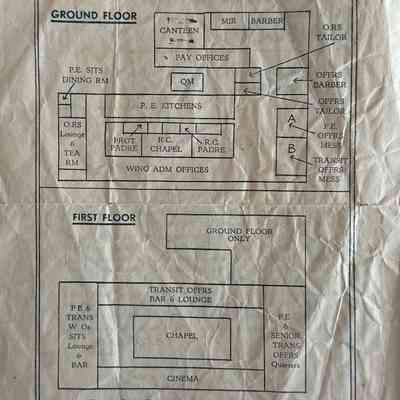 GROUND FLOOR
CANTEEN
MIR
BARBER
O.RS
TAILOR
PAY OFFICES
P.E. SJTS
DINING RM
QM
OFFRS
BARBER
P. E. KITCHENS
OFFRS
TAILOR
A
P.E
OFFRS
MESS
O.RS
Lounge
&
TEA
RM
PROT.
PADRE
R.C.
CHAPEL
R.C.
PADRE
B
TRANSIT
OFFRS
MESS
WING ADM OFFICES
FIRST FLOOR
GROUND FLOOR
ONLY
TRANSIT OFFRS
BAR & LOUNGE
P.E &
TRANS
W. Os
SJTS
Lounge
&
BAR
CHAPEL
P.E
&
SENIOR
TRANS
OFFRS
Quarters
CINEMA